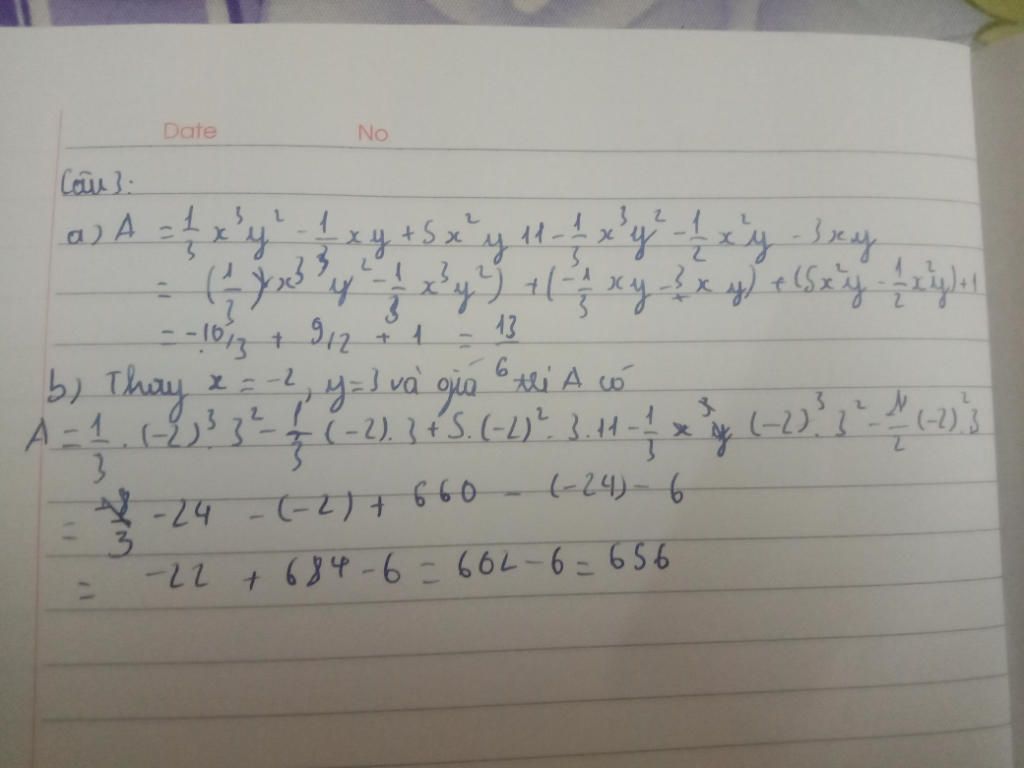 Date No
Câu 3:
a) A = 1/3 x³y² - 1/3 xy + 5x²y 11 - 1/3 x³y² - 1/2 x²y - 3xy
= (1/3 x³ y² - 1/3 x³y²) + (-1/3 xy - 3 xy) + (5x²y - 1/2 x²y) + 1
= -10/3 + 9/2 + 1 = 13/6
b) Thay x = -2, y = 3 và giá trị A có
A = 1/3 . (-2)³ 3² - 1/3 (-2) . 3 + 5 . (-2)² . 3 . 11 - 1/3 (-2)³ . 3² - 1/2 (-2)² 3
= -24 - (-2) + 660 - (-24) - 6
= -22 + 684 - 6 = 662 - 6 = 656